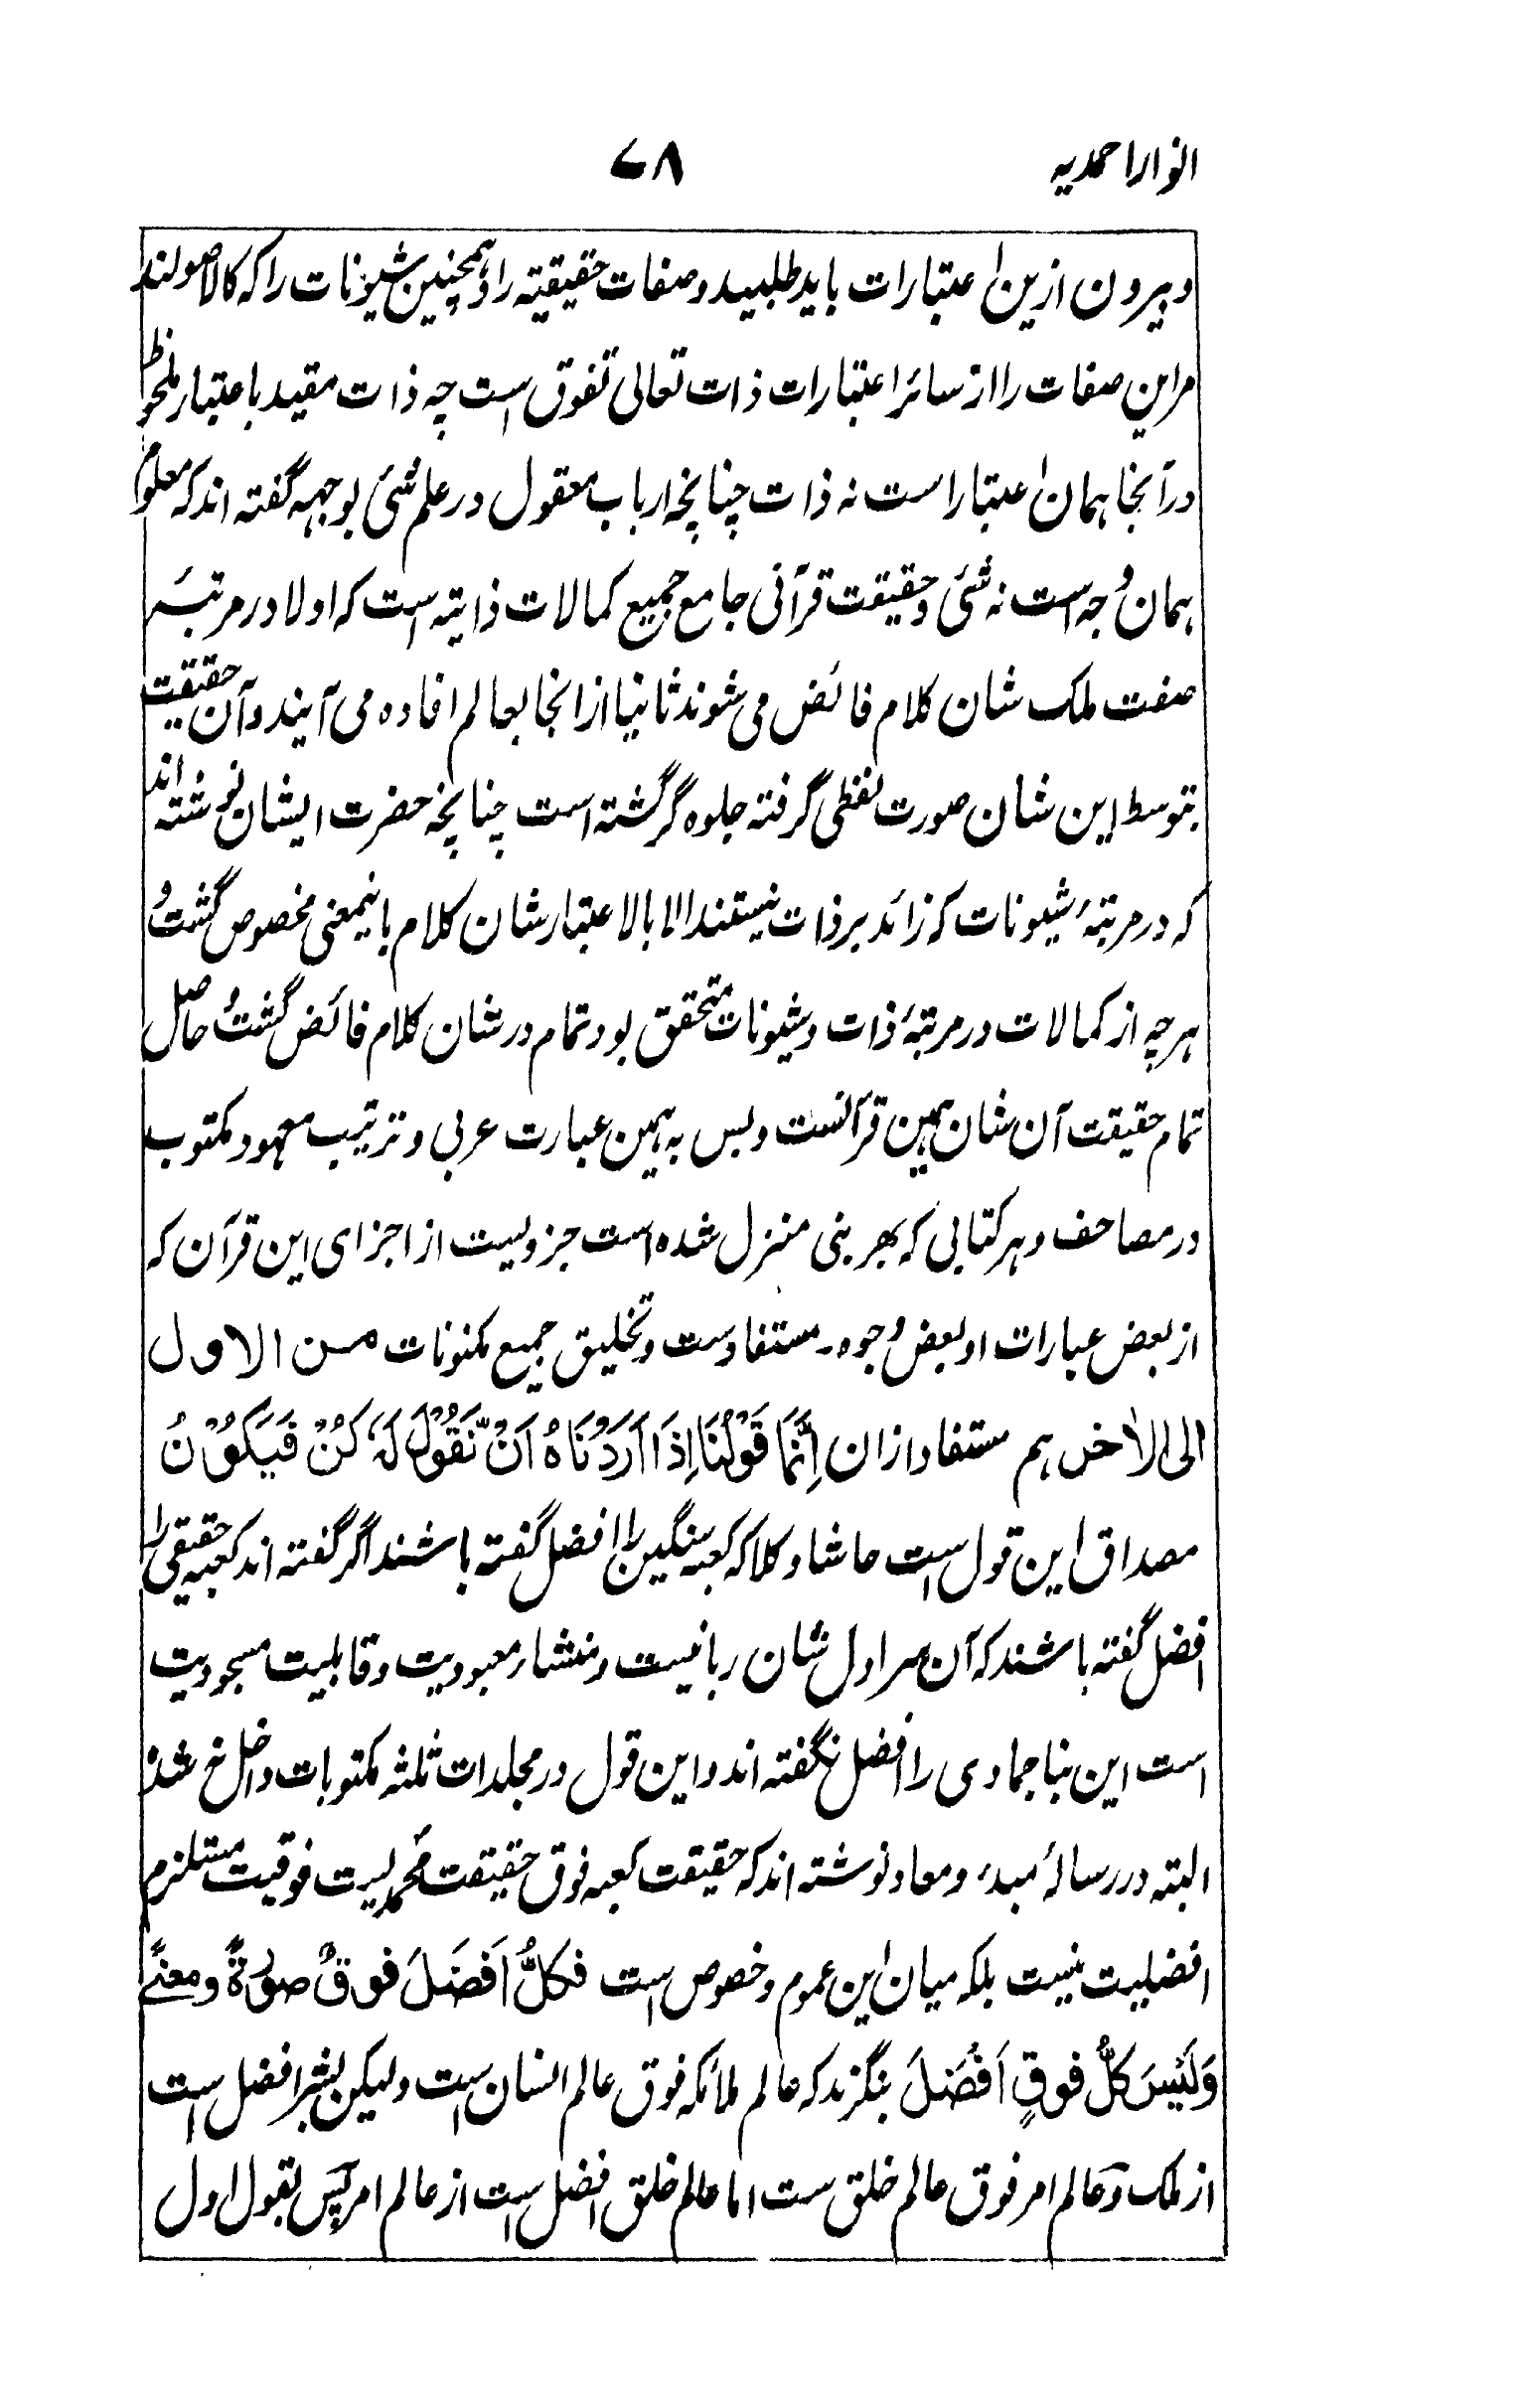 انوار احمدیہ
۷۸
و بیرون ازین اعتبارات باید طلبید و صفات حقیقیتہ را و ہمچنین شیونات را کہ کالاصولند
مراین صفات را از سائر اعتبارات ذات تعالی تفوق است چہ ذات مقید باعتبار ملحوظ
درآنجا ہمان اعتبار است نہ ذات چنانچہ ارباب معقول در علم شئ بوجہہ گفتہ اند کہ معلوم
ہمان وجہ است نہ شئ و حقیقت قرآنی جامع جمیع کمالات ذاتیتہ است کہ اولا در مرتبۂ
صفت ملک شان کلام فائض می شوند ثانیا ازانجا بعالم افادہ می آیند و آن حقیقت
بتوسط این شان صورت لفظی گرفتہ جلوہ گر گشتہ است چنانچہ حضرت ایشان نوشتہ اند
کہ در مرتبۂ شیونات کہ زائد بر ذات نیستند الا بالاعتبار شان کلام باینمعنی مخصوص گشتہ و
ہرچہ از کمالات در مرتبۂ ذات و شیونات متحقق بود تمام در شان کلام فائض گشتہ حاصل
تمام حقیقت آن شان ہمین قرآنست و بس بہ ہمین عبارت عربی و ترتیب معہود مکتوب
در مصاحف و ہر کتابی کہ بہر نبی منزل شدہ است جزویست از اجزای این قرآن کہ
از بعض عبارات او بعض وجوہ۔ مستفادست و تخلیق جمیع مکنونات من الاول
الی الاخر ہم مستفاد ازان اِنَّمَا قَوْلُنَا اِذَا اَرَدْنَاہُ اَنْ نَّقُوْلَ لَہٗ کُنْ فَیَکُوْنُ
مصداق این قول است حاشا و کلا کہ کعبہ سنگین را افضل گفتہ باشند اگر گفتہ اند کعبہ حقیقی را
افضل گفتہ باشند کہ آن سر اول شان ربانیست و منشاء معبودیت و قابلیت مسجودیت
است این بنا جمادی را افضل نگفتہ اند و این قول در مجلدات ثلثہ مکتوبات داخل نہ شدہ
البتہ در رسالۂ مبدء و معاد نوشتہ اند کہ حقیقت کعبہ فوق حقیقت محمدیست فوقیت مستلزم
افضلیت نیست بلکہ میان این عموم و خصوص است فکلُّ اَفضَلَ فوقٌ صوُرَۃً و معنًے
وَلَیْسَ کلُّ فوقٍ اَفْضَلَ بنگرند کہ عالم ملائکہ فوق عالم انسان است ولیکن بشر افضل است
از ملک و عالم امر فوق عالم خلق ست اما عالم خلق افضل است از عالم امر پس بقول اول